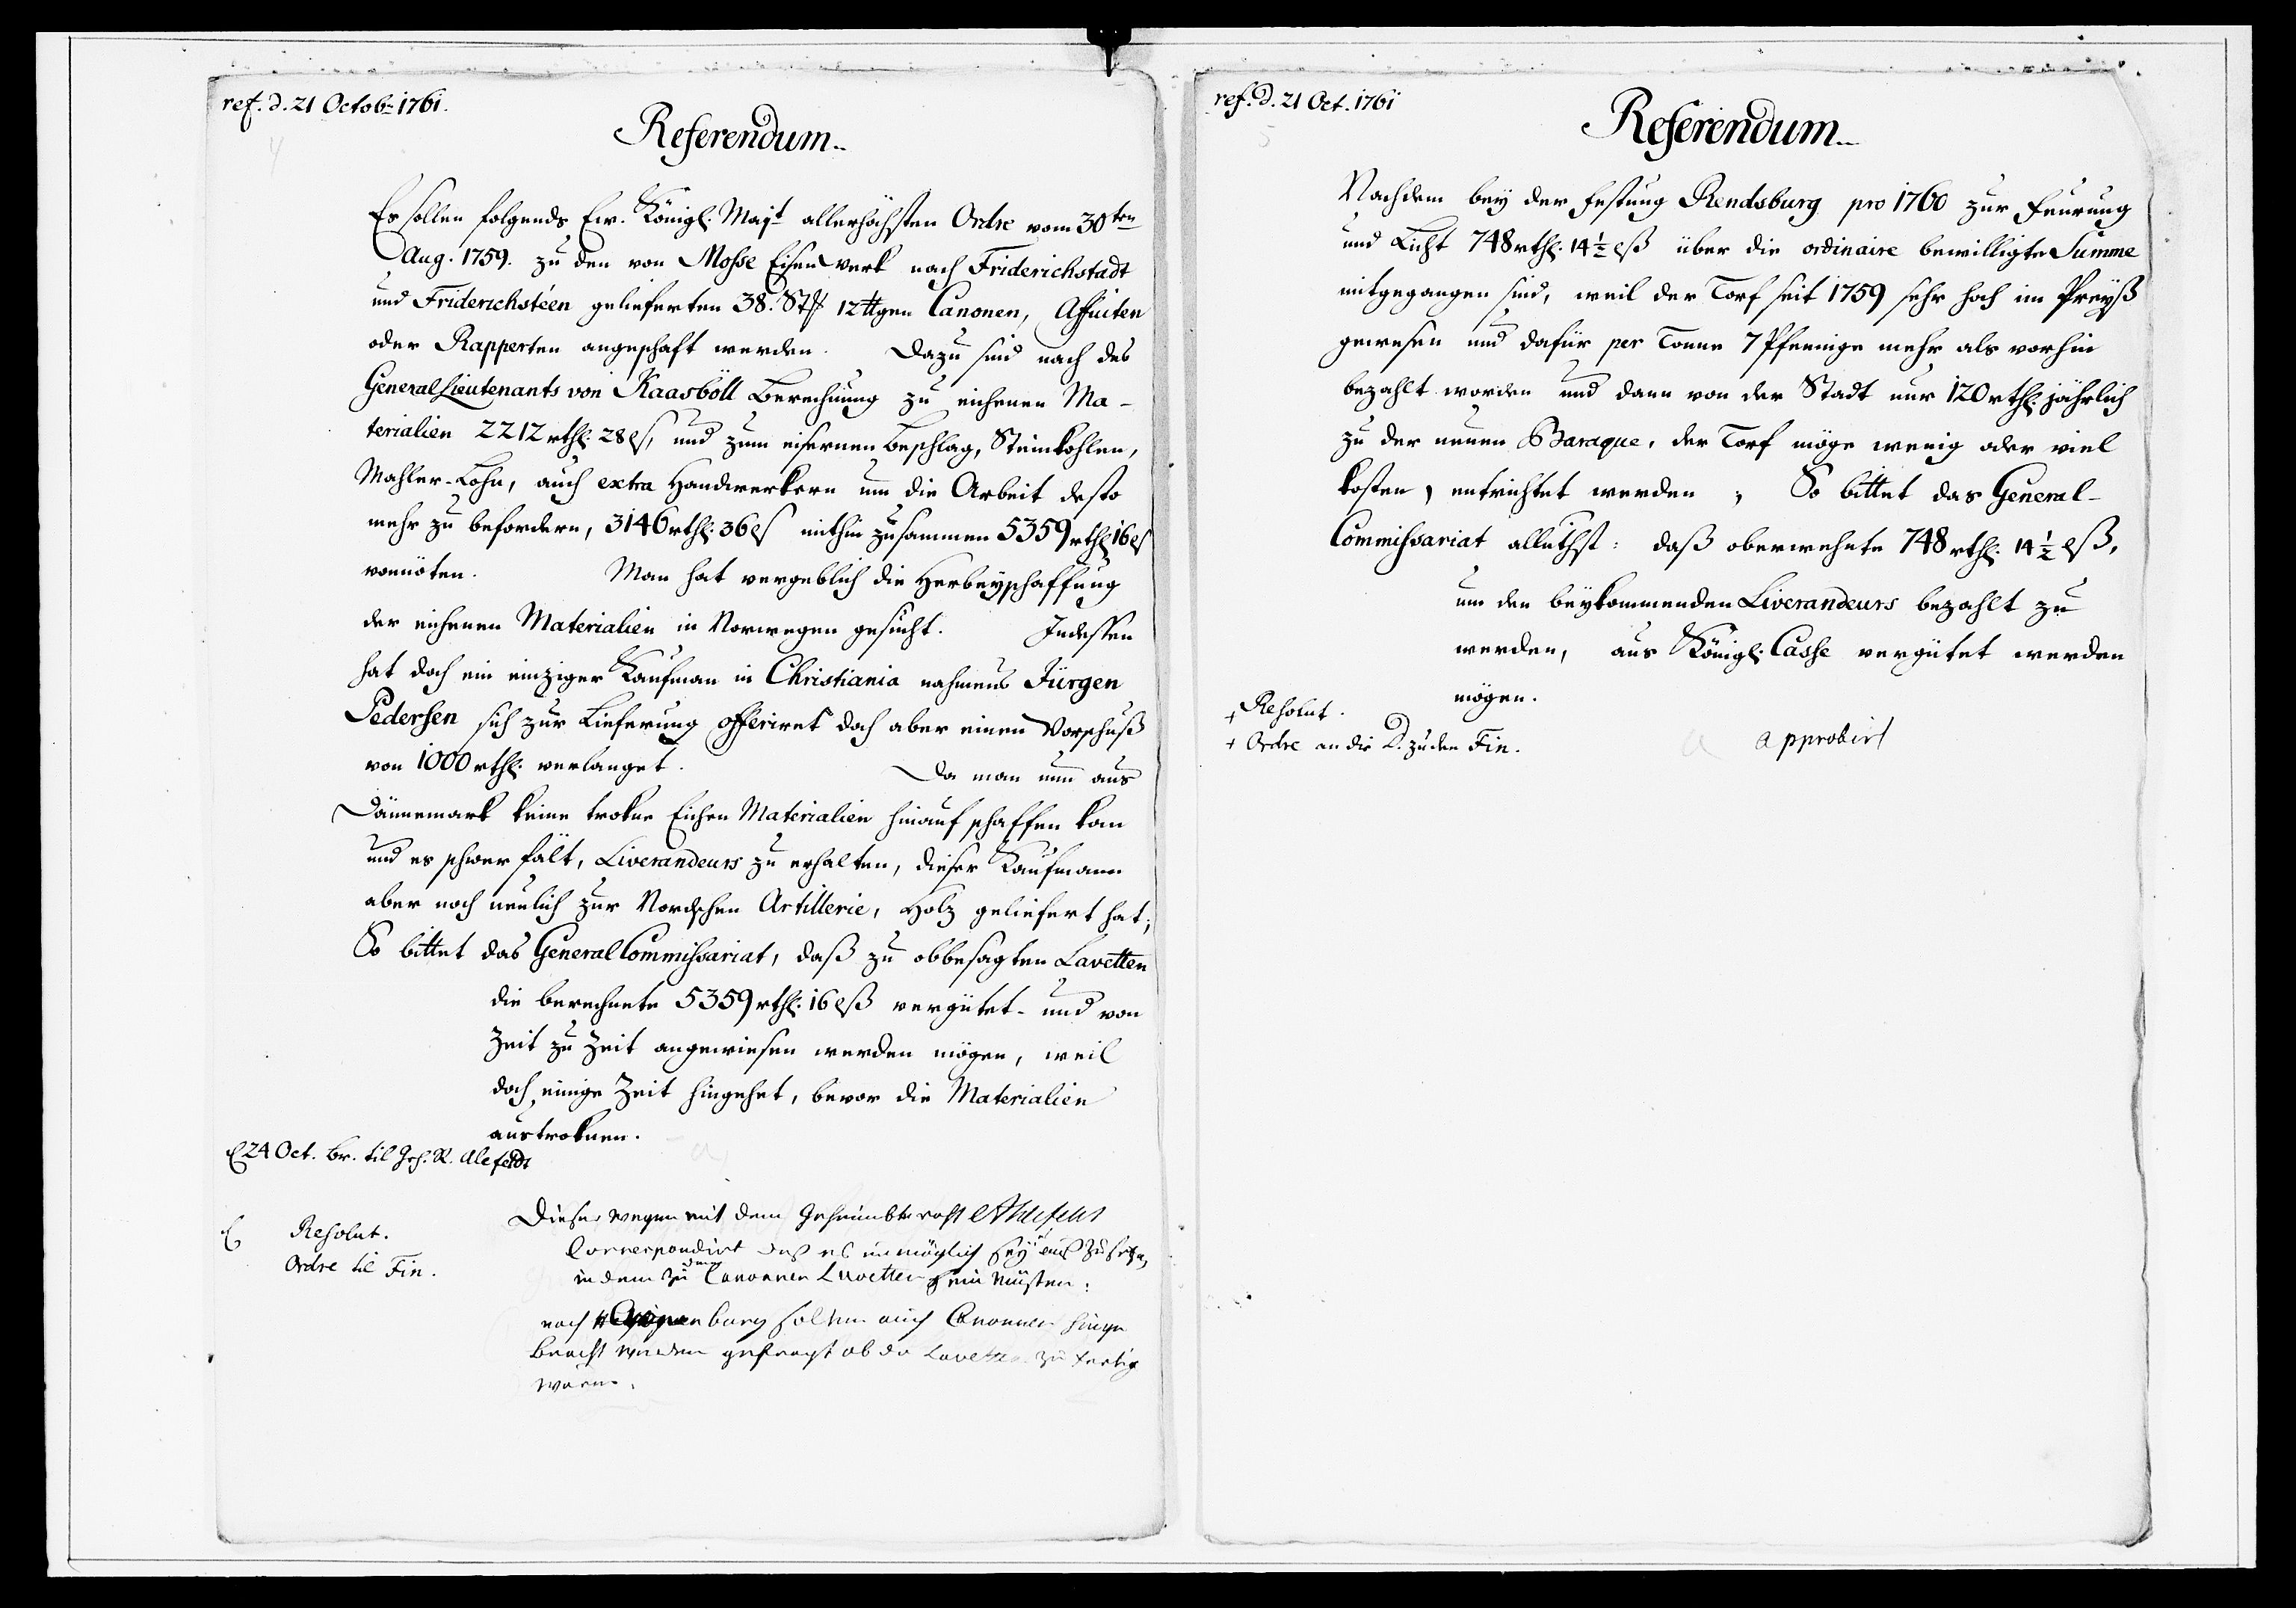 ref. d. 21 Octobr 1761.
4
Referendum.
Es sollen folgends Ew. Königl. Majt allerhöchsten Ordre vom 30ten
Aug. 1759. zu den von Mosse Eisenwerk nach Friderichstadt
und Friderichstéen gelieferten 38. Stk 12 ℔gen Canonen, Affuiten
oder Rapperten angeschaft werden. Dazu sind nach des
General Lieutenants von Kaasböll Berechnung zu eichenen Ma-
terialien 2212 rthl. 28 ß, und zum eisernen Beschlag, Steinkohlen,
Mahler-Lohn, auch extra Handwerkern um die Arbeit desto
mehr zu befordern, 3146 rthl. 36 ß mithin zusammen 5359 rthl. 16 ß
vonnöten. Man hat vergeblich die Herbeyschaffung
der eichenen Materialien in Norwegen gesucht. Indessen
hat doch ein einziger Kaufman in Christiania nahmens Jürgen
Pedersen sich zur Lieferung offeriret doch aber einen Vorschuß
von 1000 rthl. verlanget. Da man nun aus
Dännemark keine trokne Eichen Materialien hinauf schaffen kan
und es schwer fält, Liverandeurs zu erhalten, dieser Kaufmann
aber noch neulich zur Nordschen Artillerie, Holz geliefert hat;
So bittet das General Commissariat, daß zu obbesagten Lavetten
die berechnete 5359 rthl. 16 lß vergütet- und von
Zeit zu Zeit angewiesen werden mögen, weil
doch einige Zeit hingehet, bevor die Materialien
austroknen.
24 Oct. br. til Geh. R. Alefeldt
Dieser wegen mit dem Geheimbte raht Ahlefeldt
Resolut.
Correspondirt daß es unmöglich sey aus zu setzen,
Ordre til Fin.
in dem zu denen Canonnen Lavetten sein müsten.
nach burg solten auch Canonnen hinge
bracht werden gefragt ob da Lavetten zu fertig
wären.
ref. d. 21 Oct. 1761
5
Referendum.
Nachdem bey der Festung Rendsburg pro 1760 zur Feurung
und Licht 748 rthl. 14 ½ lß über die ordinaire bewilligte Summe
mitgegangen sind, weil der Torf seit 1759 sehr hoch im Preyß
gewesen und dafür per Tonne 7 Pfennige mehr als vorhin
bezahlt worden und dann von der Stadt nur 120 rthl. jährlich
zu der neuen Baraque, der Torf möge wenig oder viel
kosten, entrichtet werden; So bittet das General-
Commissariat alluthst: daß oberwehnte 748 rthl. 14 ½ lß,
um den beykommenden Liverandeurs bezahlt zu
werden, aus Königl. Casse vergütet werden
mögen.
+ Resolut.
+ Ordre an die D. zu den Fin.
a approbirt